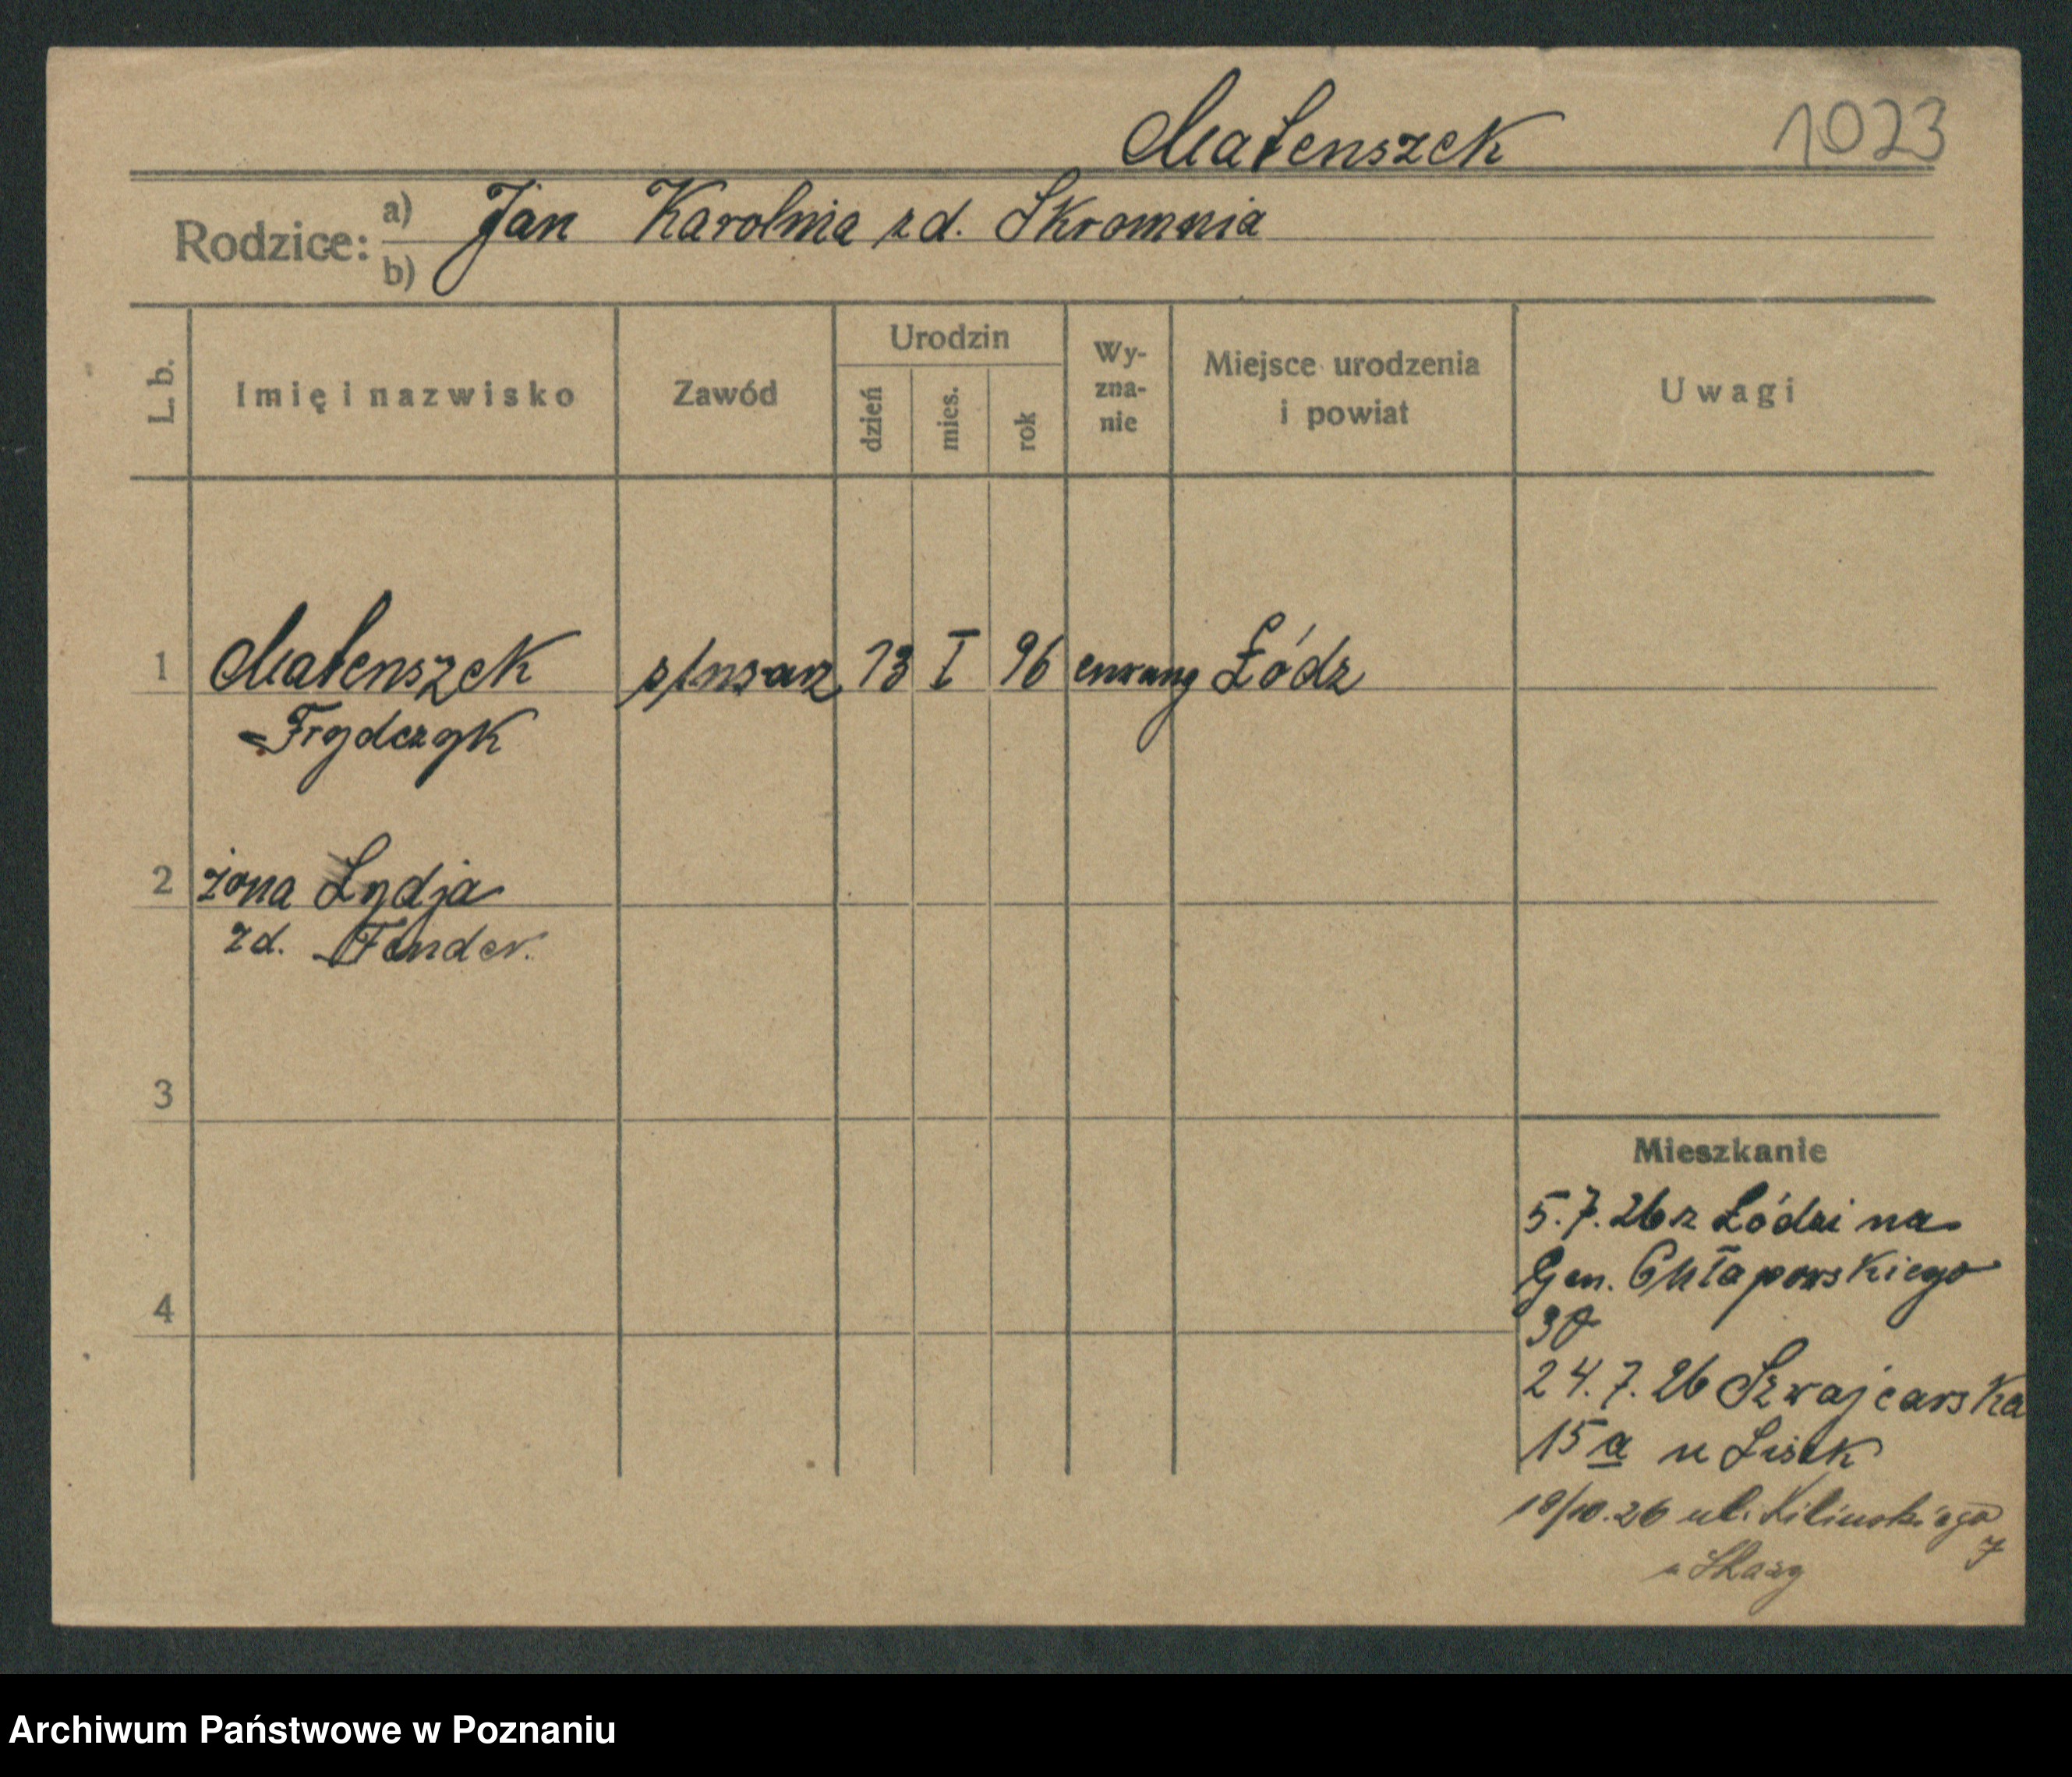 Małenszek 1023
Rodzice: a) Jan Karolina zd. Skromnia
b)
L. b. Imię i nazwisko Zawód Urodzin dzień mies. rok Wy-zna-nie Miejsce urodzenia i powiat Uwagi
1 Małenszek ślusarz 13 I 96 ewang Łódz
Frydczyk
2 żona Lydja
zd. Fender.
3
4
Mieszkanie
5.7.26 z Łódzi na
Gen. Chłapowskiego
30
24.7.26 Szwajcarska
15a u Lisek
18/10.26 ul. Kilinskiego
7
u
Archiwum Państwowe w Poznaniu